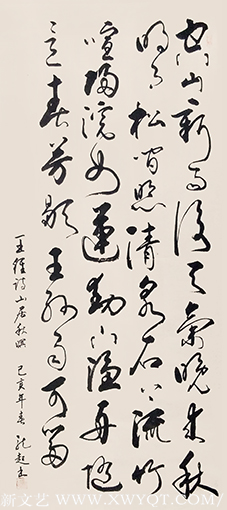 空山新雨後天氣晚來秋
明月松間照清泉石上流竹
喧歸浣女蓮動下漁舟隨
意春芳歇王孫自可留
王維詩山居秋暝 己亥年春
新文艺 / WWW.XWYQT.COM/